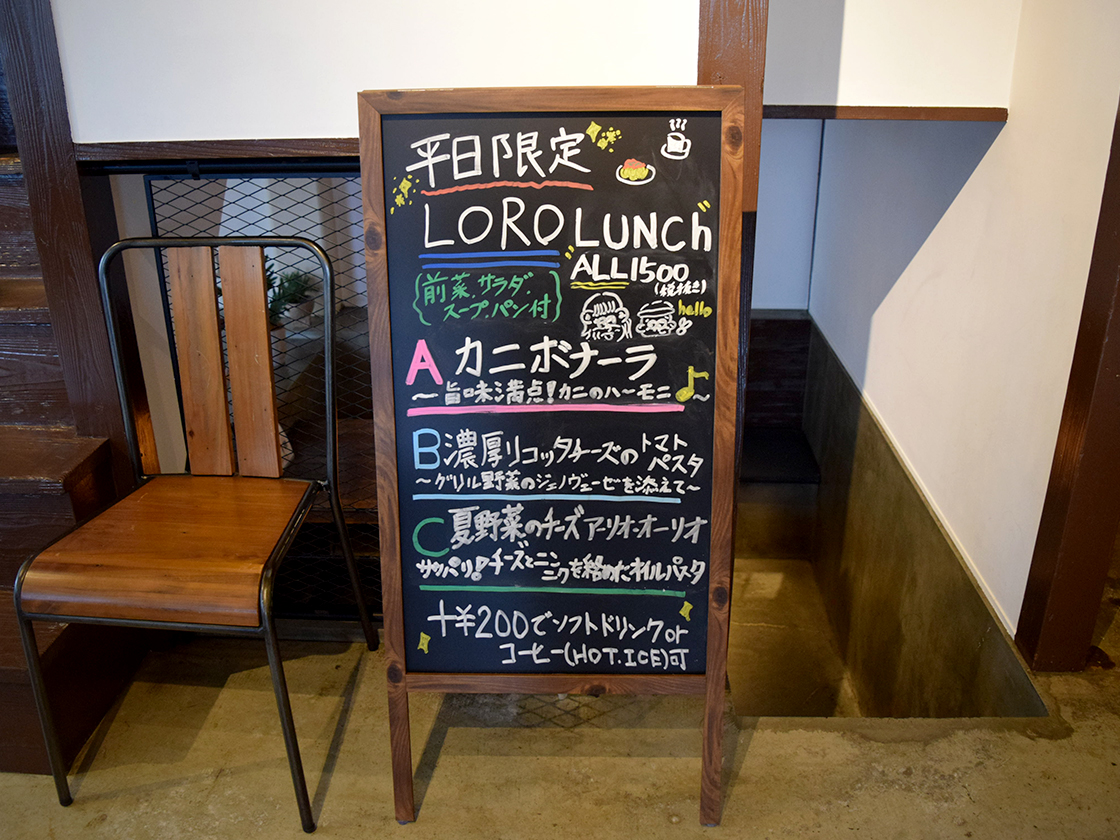 平日限定
LORO LUNCh
ALL1500
(税抜き)
前菜.サラダ.
スープ.パン付
hello
A カニボナーラ
〜旨味満点!カニのハーモニ♪〜
B 濃厚リコッタチーズのトマト
パスタ
〜グリル野菜のジェノヴェーゼを添えて〜
C 夏野菜のチーズアーリオ・オーリオ
サッパリ!チーズとニンニクを絡めたオイルパスタ
+¥200でソフトドリンクor
コーヒー(HOT.ICE)可